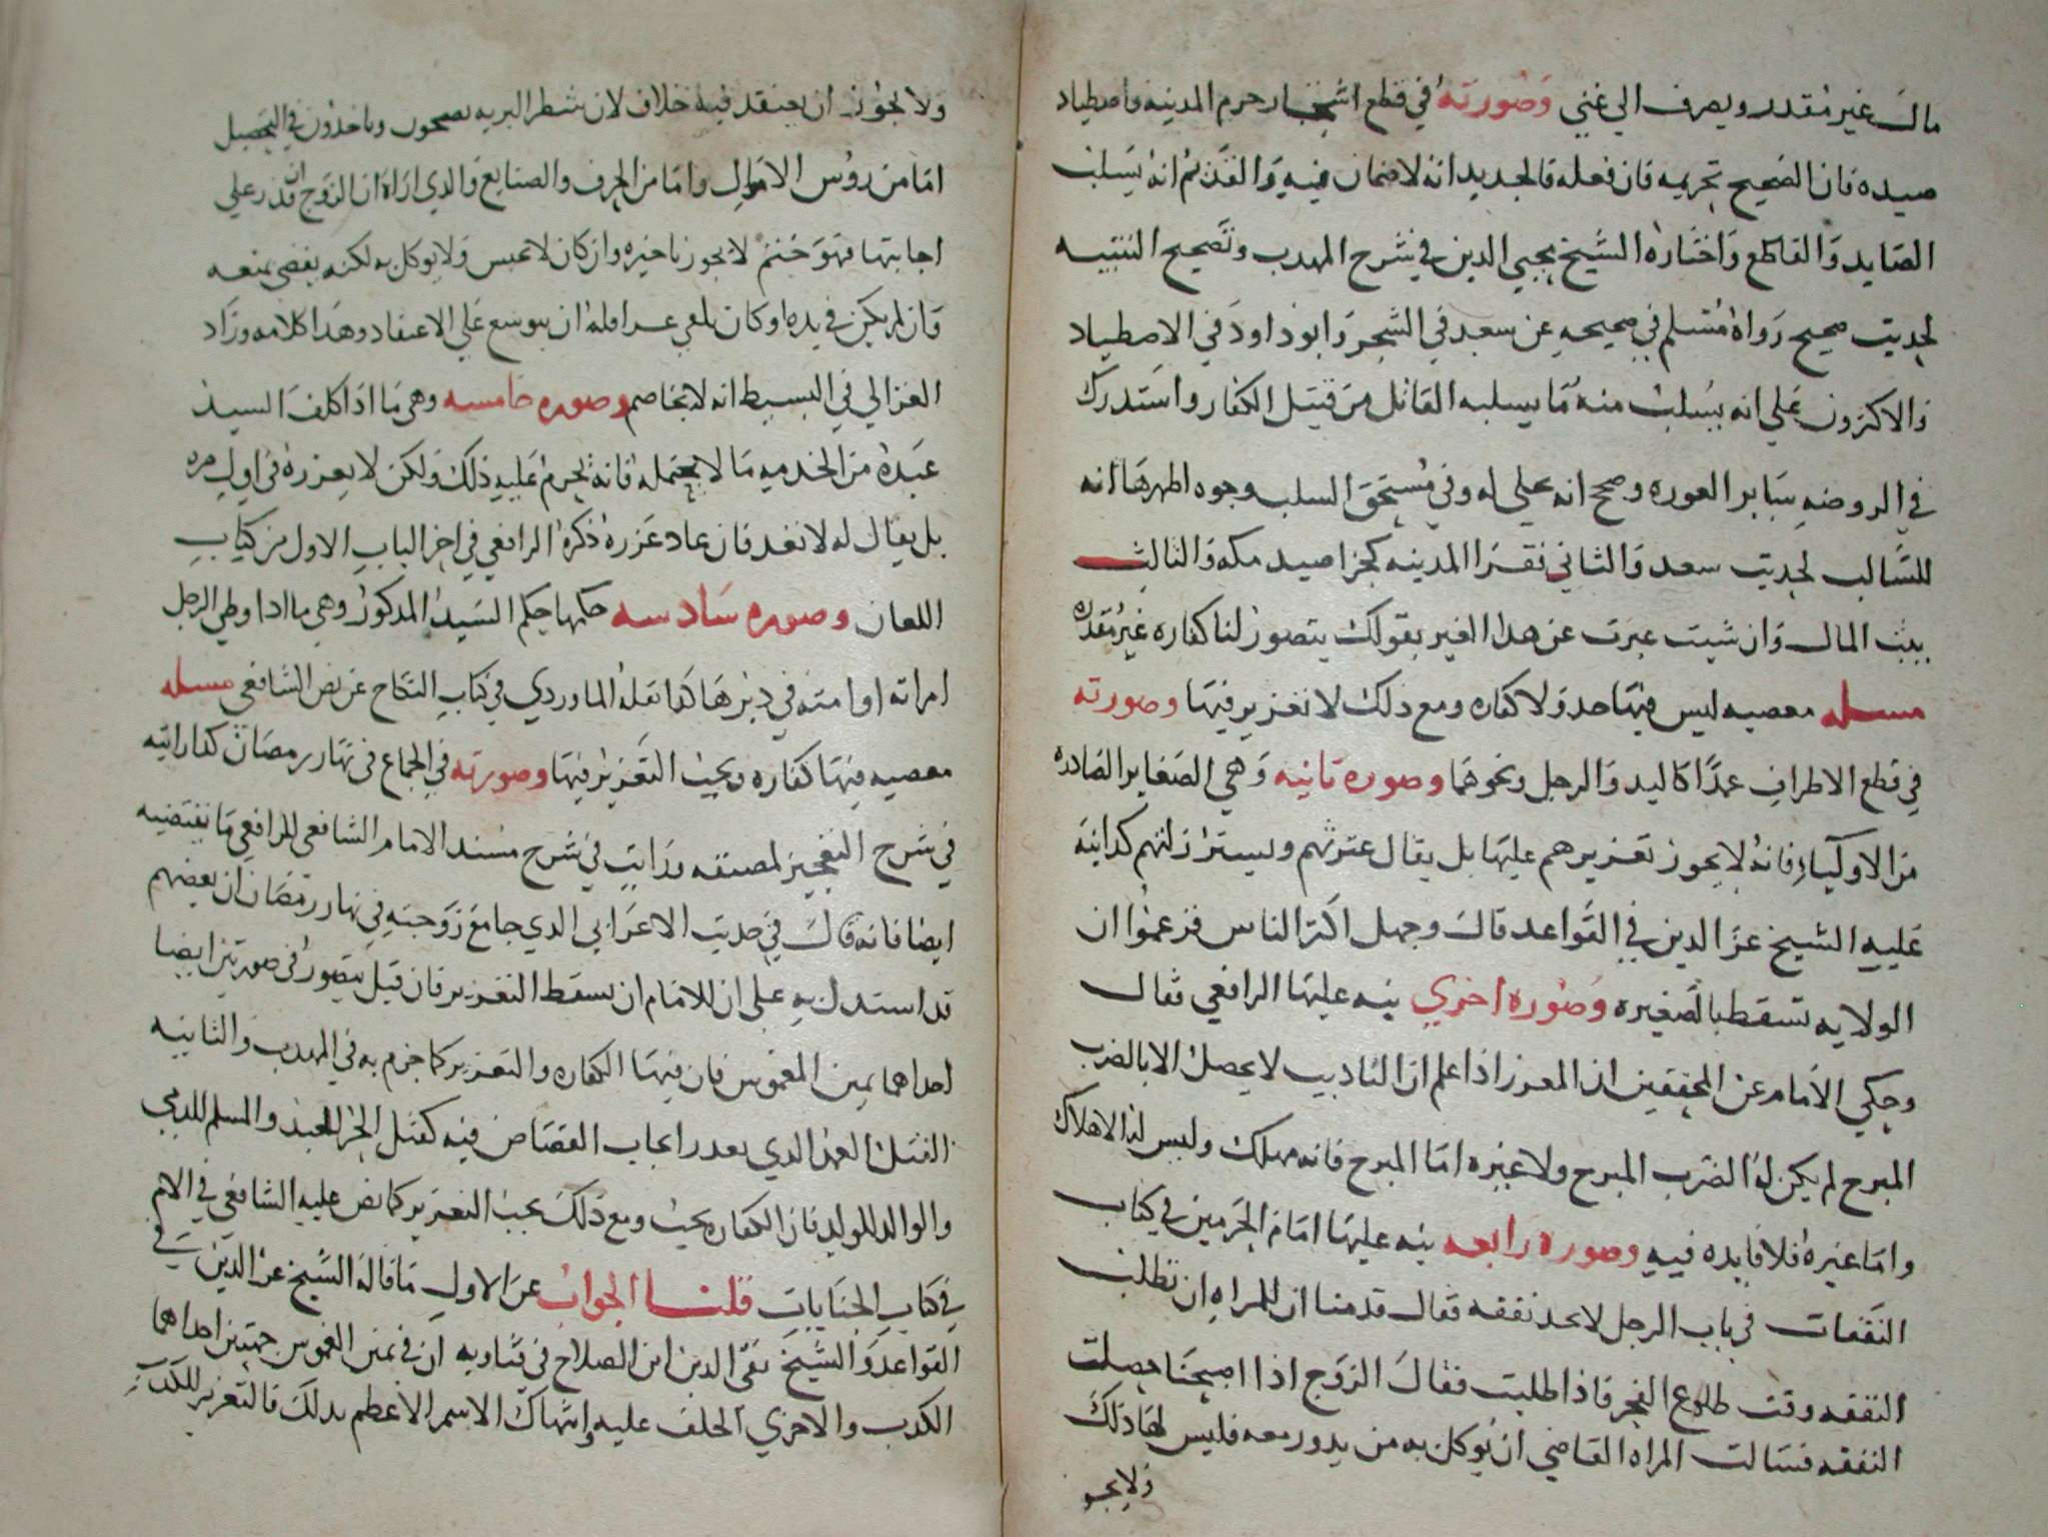 مال غير مقدر ويصرف الي غني وصورته في قطع اشجار حرم المدينه واصطياد
صيده فان الصحيح تحريمه فان فعله فالجديد انه لا ضمان فيه والقديم انه يسلب
الصايد والقاطع واختاره الشيخ محيي الدين في شرح المهدب وتصحيح التنبيه
لحديث صحيح رواه مسلم في صحيحه عن سعد في الشجر وابو داود في الاصطياد
والاكثرون علي انه يسلب منه ما يسلبه القاتل من قتيل الكفار واستدرك
في الروضه ساير العوره وصحح انه علي له وفي مستحق السلب وجوه اظهرها انه
للسالب لحديث سعد والثاني فقرا المدينه كجزا صيد مكه والثالث
بيت المال وان شيت عبرت عن هدا الغير بقولك يتصور لنا كفاره غير مقدره
مسله معصيه ليس فيها حد ولا كفاره ومع ذلك لا تعزير فيها وصورته
في قطع الاطراف عمدا كاليد والرجل ونحوهما وصوره ثانيه وهي الصغاير الصادره
من الاوليا فانه لا يجوز تعزيرهم عليها بل يقال عثرتهم ويستر زلتهم كدا نبه
عليه الشيخ عز الدين في القواعد قال وجهل اكثر الناس فزعموا ان
الولايه تسقط بالصغيره وصوره اخري نبه عليها الرافعي فقال
وحكي الامام عن المحققين ان المعزر اذا علم ان التاديب لا يحصل الا بالضرب
المبرح لم يكن له الضرب المبرح ولا غيره اما المبرح فانه مهلك وليس له الاهلاك
واما غيره فلا فايده فيه وصوره رابعه نبه عليها امام الحرمين في كتاب
النفقات في باب الرجل لا يجد نفقه فقال قدمنا ان للمراه ان تطلب
النفقه وقت طلوع الفجر فاذا طلبت فقال الزوج اذا اصبحنا حصلت
النفقه فسالت المراه القاضي ان يوكل به من يدور معه فليس لها ذلك
ولا يجو
ولا يجوز ان يعتقد فيه خلاف لان شطر البريه يصبحون وياخذون في التحصيل
اما من روس الاموال واما من الحرف والصنايع والدي اراه ان الزوج ان قدر علي
اجابتها فهو حتم لا يجوز تاخيره وان كان لا يحبس ولا يوكل به لكنه يعصي بمنعه
وان لم يكن في يده وكان يلقي عسرا فله ان يتوسع علي الاعتقاد وهدا كلامه وزاد
الغزالي في البسيط انه لا يخاصم وصوره خامسه وهي ما اذا كلف السيد
عبده من الخدمه ما لا يحتمله فانه يحرم عليه ذلك ولكن لا يعزره في اول مره
بل يقال له لا تعد فان عاد عزره ذكره الرافعي في اخر الباب الاول من كتاب
اللعان وصوره سادسه حكمها حكم السيد المدكور وهي ما ادا وطي الرجل
امراته او امته في دبرها كما نقله الماوردي في كتاب النكاح عن نص الشافعي مسله
معصيه فيها كفاره ويجب التعزير فيها وصورته في الجماع في نهار رمضان كدا رايته
في شرح التعجيز لمصنفه ورايت في شرح مسند الامام الشافعي للرافعي ما يقتضيه
ايضا فانه قال في حديث الاعرابي الدي جامع زوجته في نهار رمضان ان بعضهم
قد استدل به علي ان للامام ان يسقط التعزير فان قيل يتصور في صورتين ايضا
احداهما يمين الغموس فان فيها الكفاره والتعزير كما جزم به في المهدب والثانيه
القتل العمد الدي تعدر ايجاب القصاص فيه كقتل الحر للعبد والمسلم للدمي
والوالد للولد فان الكفاره تجب ومع ذلك يجب التعزير كما نص عليه الشافعي في الام
في كتاب الجنايات قلنا الجواب عن الاول ما قاله الشيخ عز الدين في
القواعد والشيخ تقي الدين ابن الصلاح في فتاويه ان في يمين الغموس جهتين احداهما
الكدب والاخري الحلف عليه وانتهاك الاسم الاعظم بدلك فالتعزير للكدب